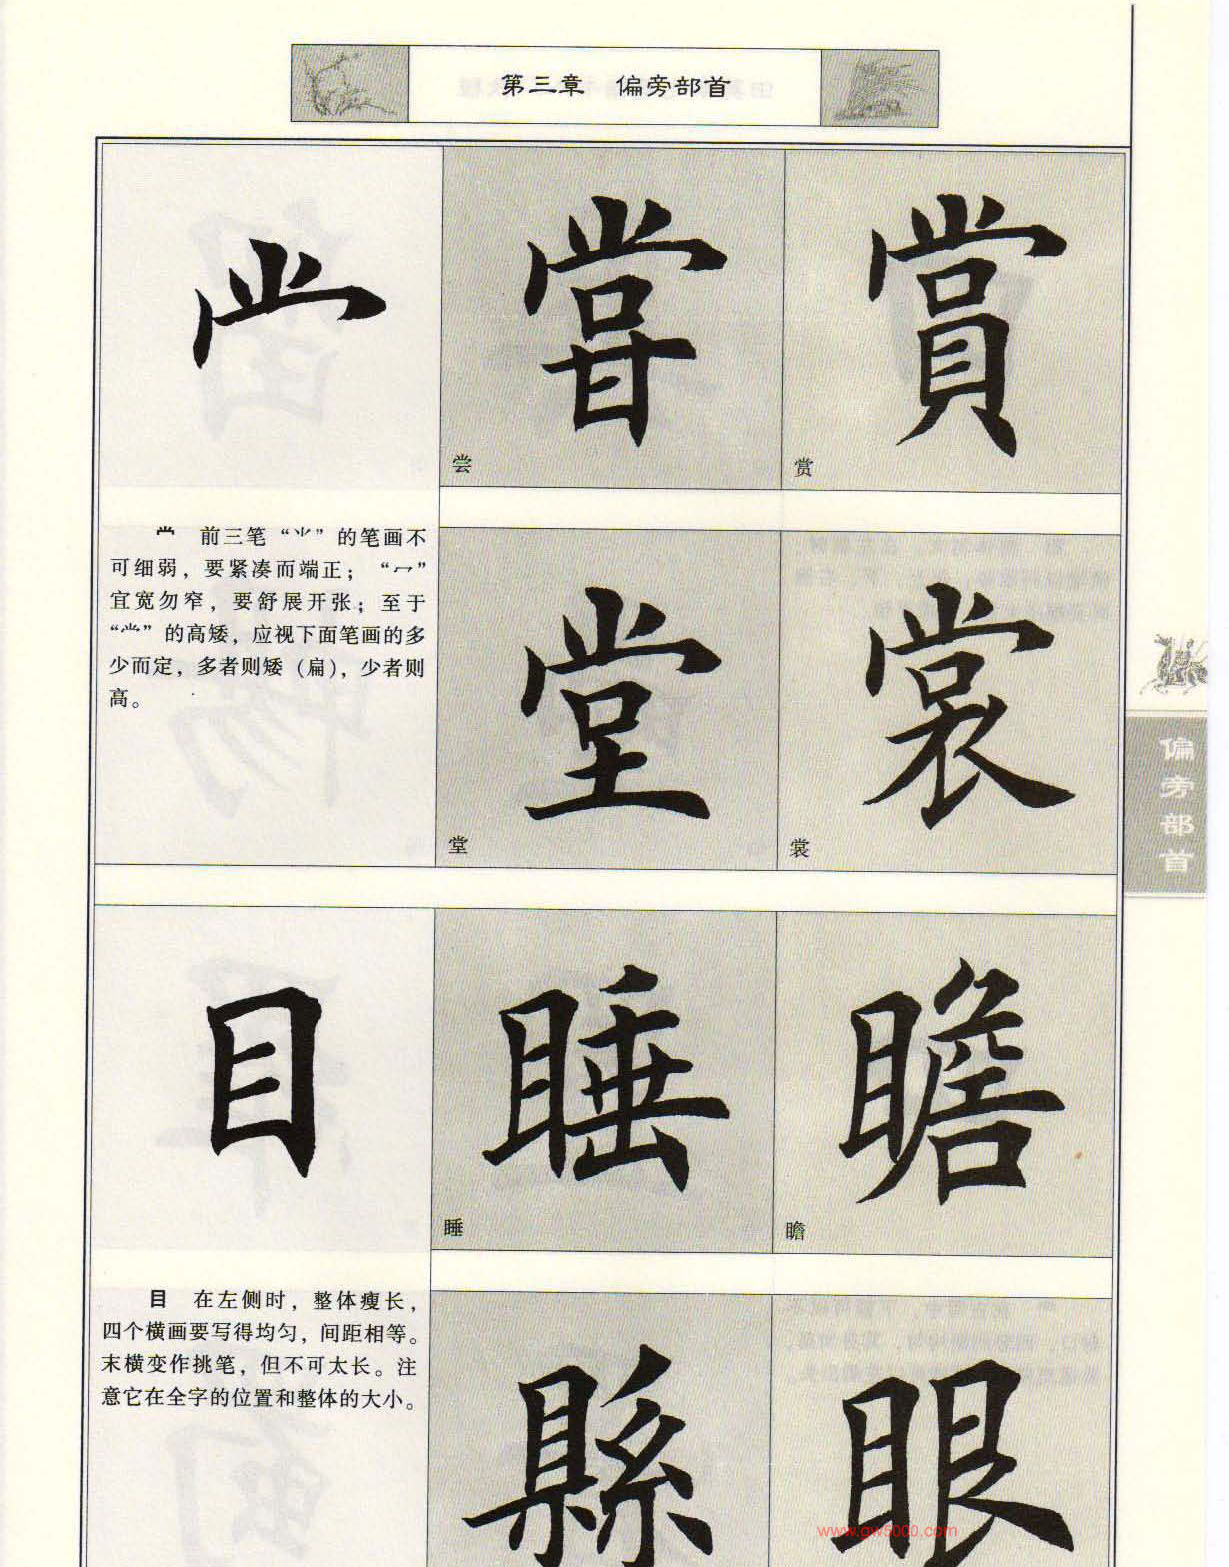 第三章 偏旁部首
龸
嘗
賞
尝
赏
龸 前三笔“⺌”的笔画不
可细弱，要紧凑而端正；“冖”
宜宽勿窄，要舒展开张；至于
“龸”的高矮，应视下面笔画的多
少而定，多者则矮（扁），少者则
高。
堂
裳
堂
裳
偏旁部首
目
睡
瞻
睡
瞻
目 在左侧时，整体瘦长，
四个横画要写得均匀，间距相等。
末横变作挑笔，但不可太长。注
意它在全字的位置和整体的大小。
縣
眼
www.gw5000.com